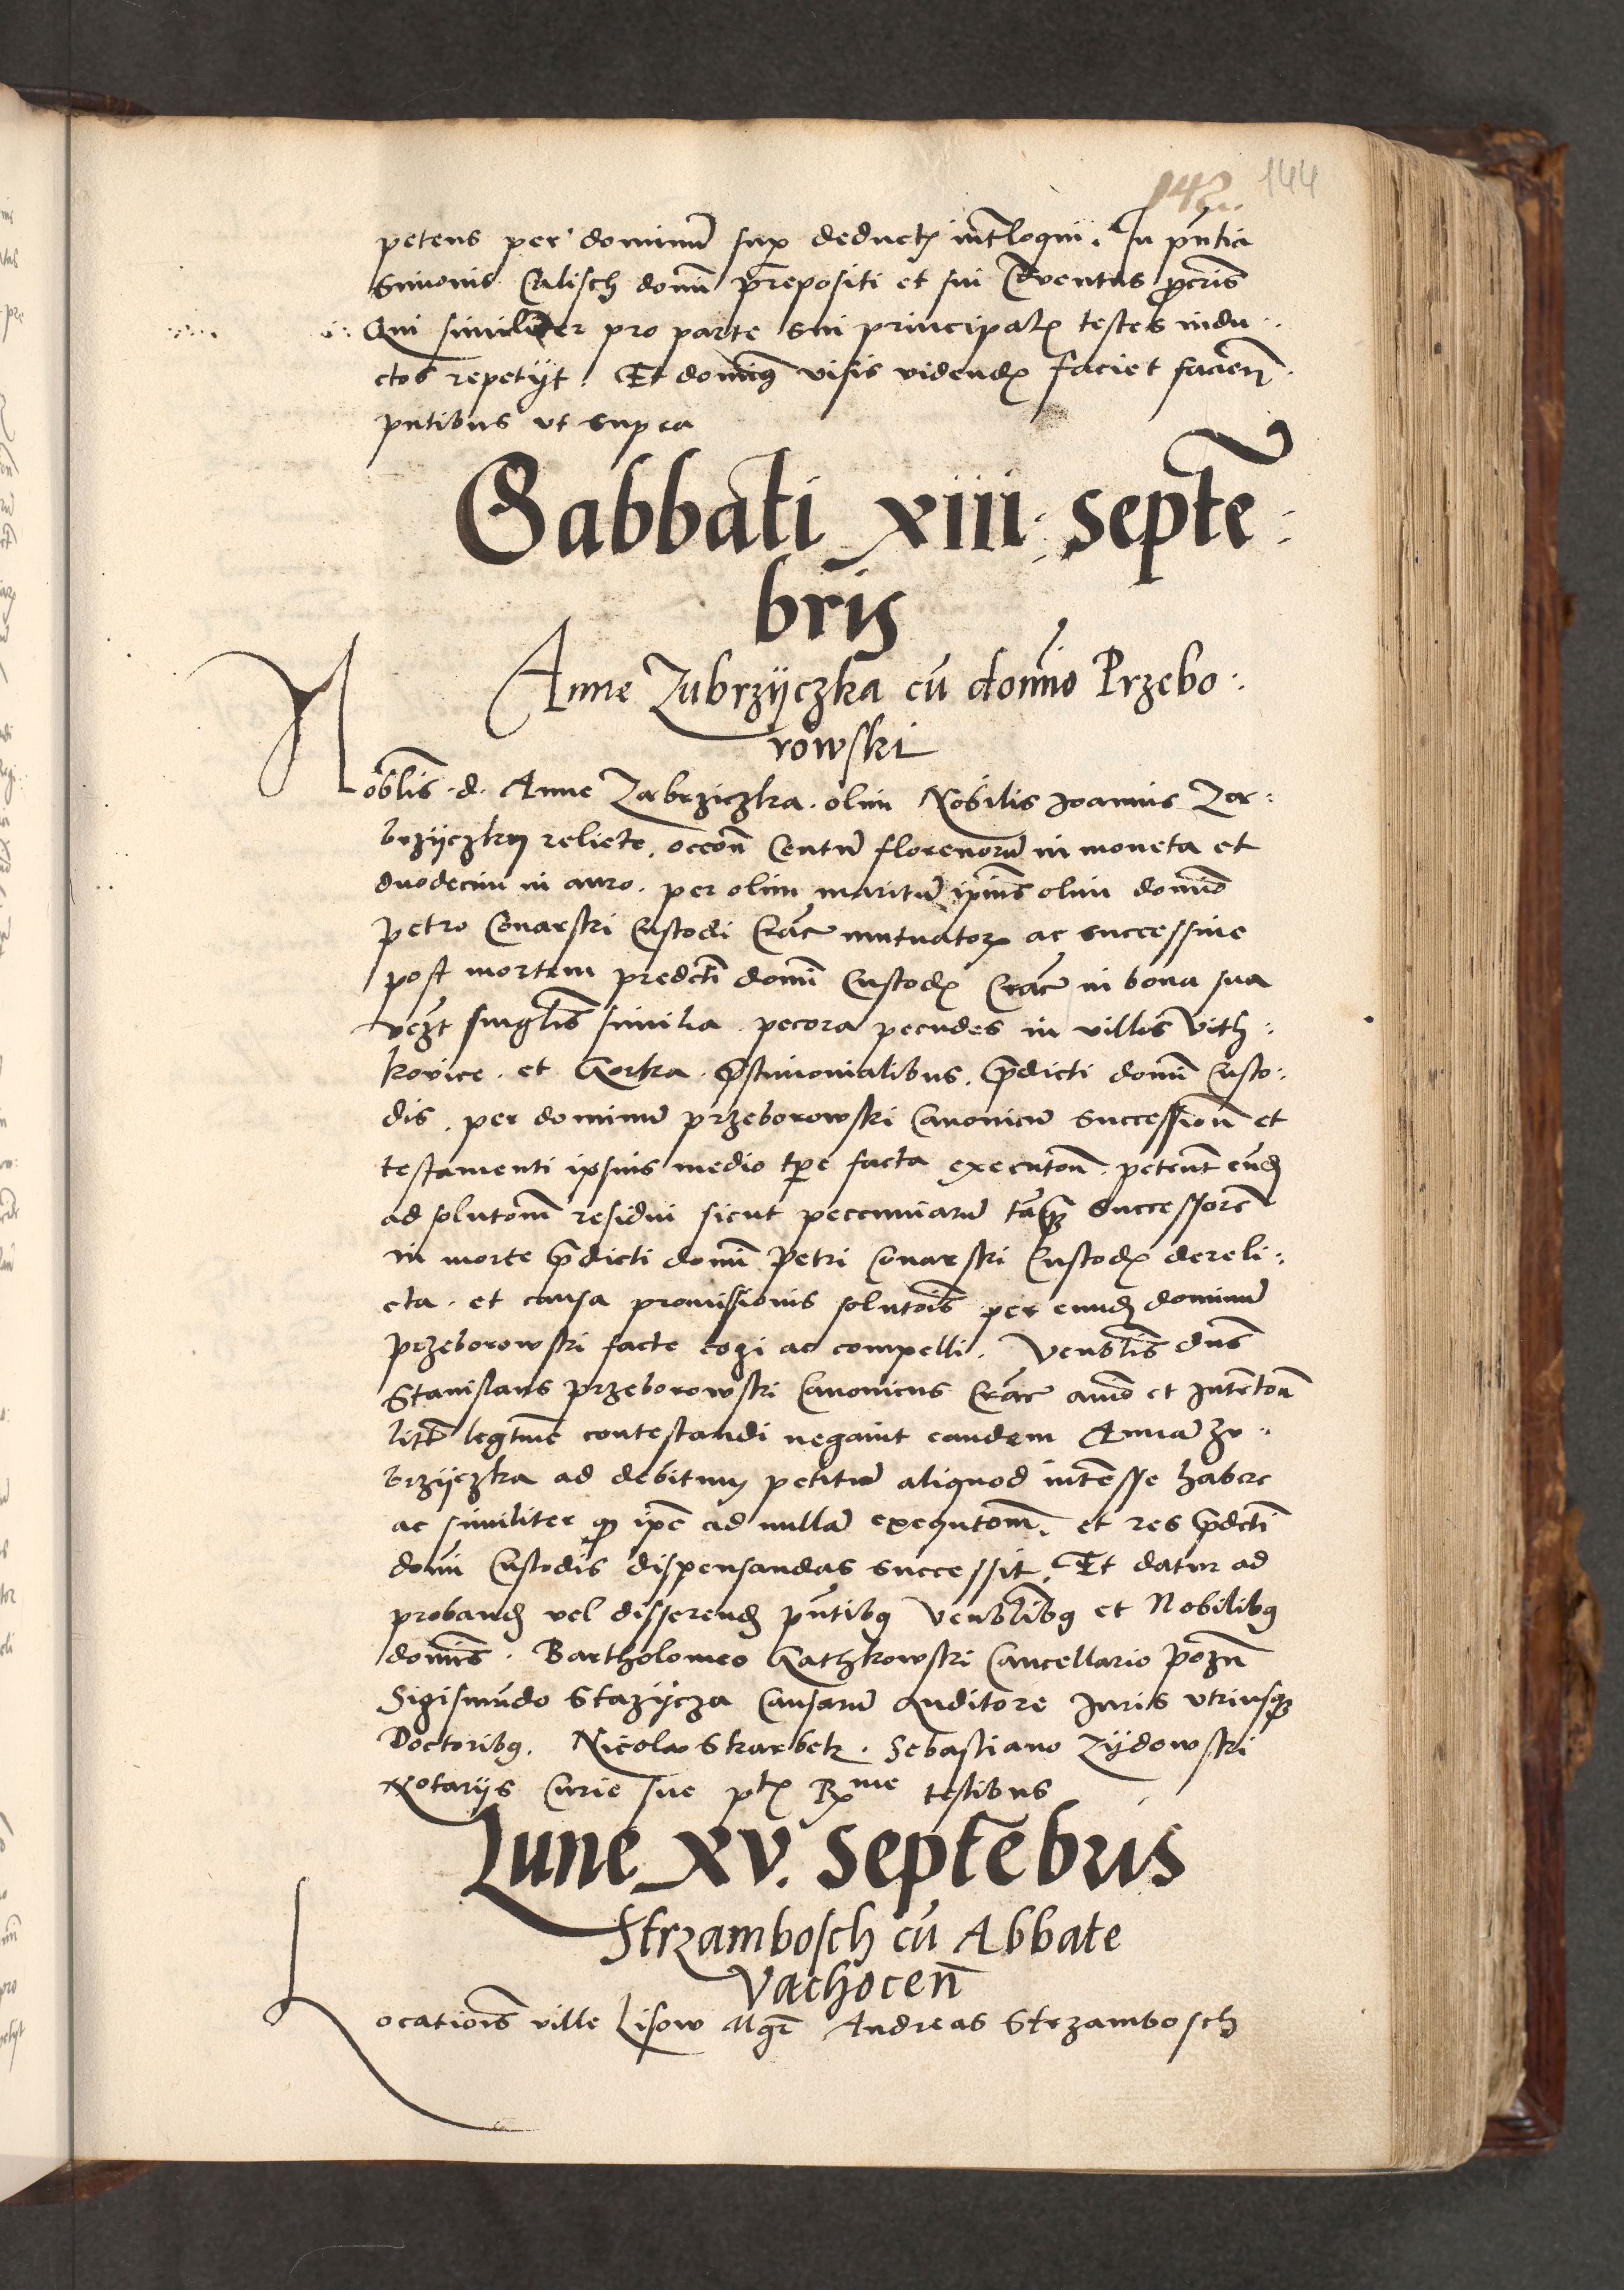 142 144
petens per dominũ sup deductꝭ int̃loqui. In pñtia
Simonis Calisch domĩ p̃repositi et sui Cõventus p̃cris
Qui similiter pro parte sui principalꝭ testes indu:
ctos repetyt. Et dominus visis videndꝭ faciet facieñ.
pntibus vt supra
Sabbati xiii septẽ:
bris
Anne Zubrzyczka cũ domĩo Przebo:
rowski
Noblis d. Anne Zubrziczka olim Nobilis Joannis Zu:
brzyczky relicte, occoñ Centũ florenorũ in moneta et
duodecim in auro. per olim maritũ ipĩus olim domĩo
Petro Conarski Custodi Crac̃ mutuatoꝝ ac successiue
post mortem predcti domĩ Custodꝭ Crac̃ in bona sua
vczt singlis similia pecora pecudes in villis Vith:
kovice et Gorka p̃stimonialibus p̃dicti domĩ Custo:
dis, per dominũ Przeborowski Canonicũ successionẽ et
testamenti ipsius medio tp̃e facta executoñ. peteñt eũdẽ
ad solutoñm residui sicut peccuniarũ tãqꝫ Successorẽ
in morte p̃dicti domĩ Petri Conarski Custodꝭ dereli:
cta. et causa promissionis solutoĩs per eundẽ dominũ
Przeborowski facte cogi ac compelli. Venblis dñs
Stanislaus Przeborowski Canonicus Crac̃ aĩmo et Intentoñ
litẽ legtimẽ contestandi negauit eandem Annã Zu:
brzyczka ad debitum petitũ aliquod intẽsse habere
ac similiter ꝙ ipẽ ad nullã exequtoñm. et res p̃dcti
domĩ Custodis dispensandas successit. Et datur ad
probandẽ vel disserendẽ pñtibꝫ Venblibꝫ et Nobilibꝫ
domĩs. Bartholomeo Gathkowski Cancellario Pozñ
Sigismũdo Stazycza Causarũ Auditore Juris vtriusqꝫ
Doctoribꝫ. Nicolao Skarbek. Sebastiano Zydowski
Notarijs Curie sue ptꝭ Rme testibus
Lune xv. Septẽbris
Strzambosch cũ Abbate
Vachoceñ
Locatioĩs ville Lisow Mgr̃ Andreas Strzambosch